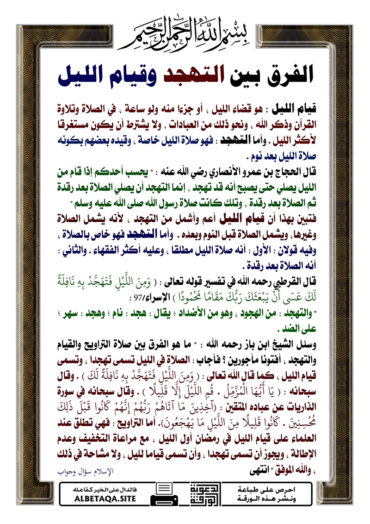 بسم الله الرحمن الرحيم
الفرق بين التهجد وقيام الليل
قيام الليل : هو قضاء الليل ، أو جزءا منه ولو ساعة ، في الصلاة وتلاوة
القرآن وذكر الله ، ونحو ذلك من العبادات ، ولا يشترط أن يكون مستغرقا
لأكثر الليل . وأما التهجد : فهو صلاة الليل خاصة ، وقيده بعضهم بكونه
صلاة الليل بعد نوم .
قال الحجاج بن عمرو الأنصاري رضي الله عنه : - يحسب أحدكم إذا قام من
الليل يصلي حتى يصبح أنه قد تهجد ، إنما التهجد أن يصلي الصلاة بعد رقدة
ثم الصلاة بعد رقدة ، وتلك كانت صلاة رسول الله صلى الله عليه وسلم -
فتبين بهذا أن قيام الليل أعم وأشمل من التهجد ، لأنه يشمل الصلاة
وغيرها، ويشمل الصلاة قبل النوم وبعده . وأما التهجد فهو خاص بالصلاة ،
وفيه قولان : الأول : أنه صلاة الليل مطلقا ، وعليه أكثر الفقهاء . والثاني :
أنه الصلاة بعد رقدة .
قال القرطبي رحمه الله في تفسير قوله تعالى : ( وَمِنَ اللَّيْلِ فَتَهَجَّدْ بِهِ نَافِلَةً
لَّكَ عَسَى أَنْ يَبْعَثَكَ رَبُّكَ مَقَامًا مَّحْمُودًا ) الإسراء/97 :
- والتهجد : من الهجود ، وهو من الأضداد ؛ يقال : هجد : نام ؛ وهجد : سهر ؛
على الضد .
وسئل الشيخ ابن باز رحمه الله : - ما هو الفرق بين صلاة التراويح والقيام
والتهجد ، أفتونا مأجورين ؟ فأجاب : الصلاة في الليل تسمى تهجدا ، وتسمى
قيام الليل ، كما قال الله تعالى : ( وَمِنَ اللَّيْلِ فَتَهَجَّدْ بِهِ نَافِلَةً لَّكَ ) . وقال
سبحانه : ( يَا أَيُّهَا الْمُزَّمِّلُ . قُمِ اللَّيْلَ إِلَّا قَلِيلًا ) . وقال سبحانه في سورة
الذاريات عن عباده المتقين : (آخِذِينَ مَا آتَاهُمْ رَبُّهُمْ إِنَّهُمْ كَانُوا قَبْلَ ذَلِكَ
مُحْسِنِينَ . كَانُوا قَلِيلًا مِنَ اللَّيْلِ مَا يَهْجَعُونَ). أما التراويح : فهي تطلق عند
العلماء على قيام الليل في رمضان أول الليل ، مع مراعاة التخفيف وعدم
الإطالة . ويجوز أن تسمى تهجدا ، وأن تسمى قياما لليل ، ولا مشاحة في ذلك
، والله الموفق - انتهى
الإسلام سؤال وجواب
احرص على طباعة
ونشر هذه الورقة
فالدال على الخير كفاعله
ALBETAQA.SITE